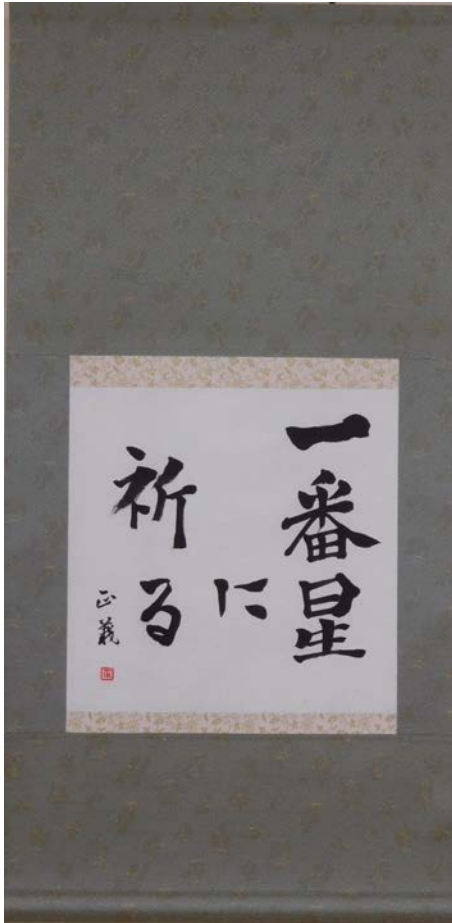 一番星
に
祈る
正義